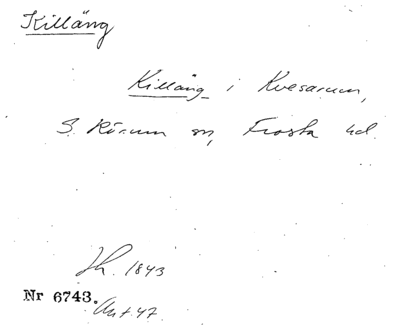 Killäng
Killäng i Kvesarum,
S. Rörum sn, Frosta hd.
1843
Nr 6743.
Ant 47.